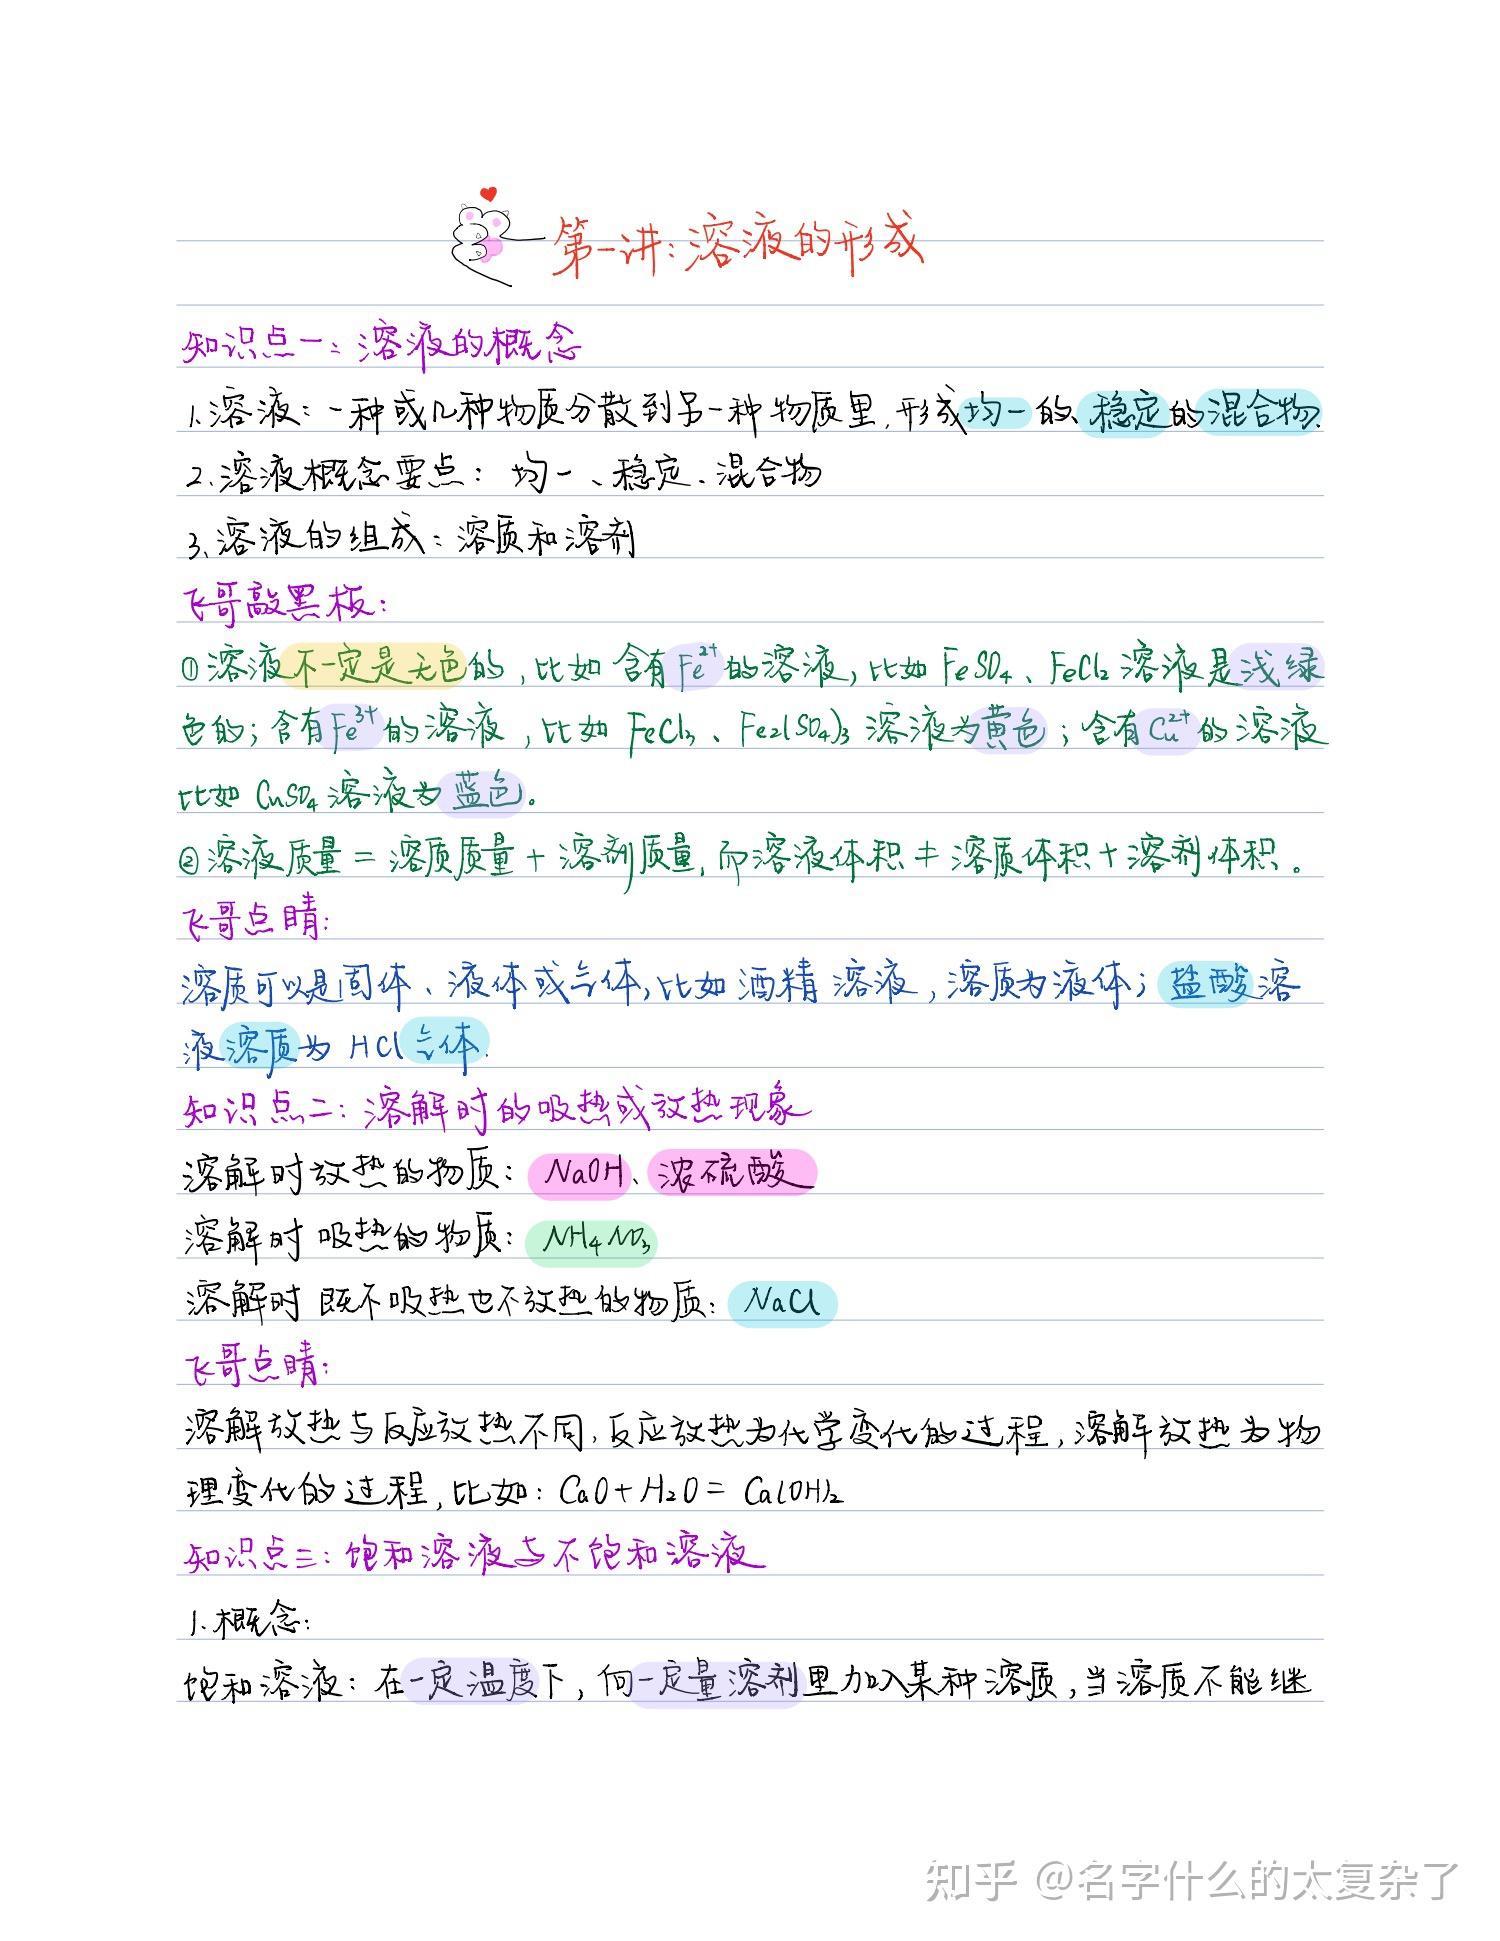 第一讲:溶液的形成
知识点一:溶液的概念
1.溶液:一种或几种物质分散到另一种物质里,形成均一的、稳定的混合物.
2.溶液概念要点:均一、稳定、混合物
3.溶液的组成:溶质和溶剂
飞哥敲黑板:
①溶液不一定是无色的,比如含有Fe²⁺的溶液,比如FeSO₄、FeCl₂溶液是浅绿
色的;含有Fe³⁺的溶液,比如FeCl₃、Fe₂(SO₄)₃溶液为黄色;含有Cu²⁺的溶液
比如CuSO₄溶液为蓝色。
②溶液质量=溶质质量+溶剂质量,而溶液体积≠溶质体积+溶剂体积。
飞哥点睛:
溶质可以是固体、液体或气体,比如酒精溶液,溶质为液体;盐酸溶
液溶质为HCl气体.
知识点二:溶解时的吸热或放热现象
溶解时放热的物质:NaOH、浓硫酸
溶解时吸热的物质:NH₄NO₃
溶解时既不吸热也不放热的物质:NaCl
飞哥点睛:
溶解放热与反应放热不同,反应放热为化学变化的过程,溶解放热为物
理变化的过程,比如:CaO+H₂O=Ca(OH)₂
知识点三:饱和溶液与不饱和溶液
1.概念:
饱和溶液:在一定温度下,向一定量溶剂里加入某种溶质,当溶质不能继
知乎 @名字什么的太复杂了